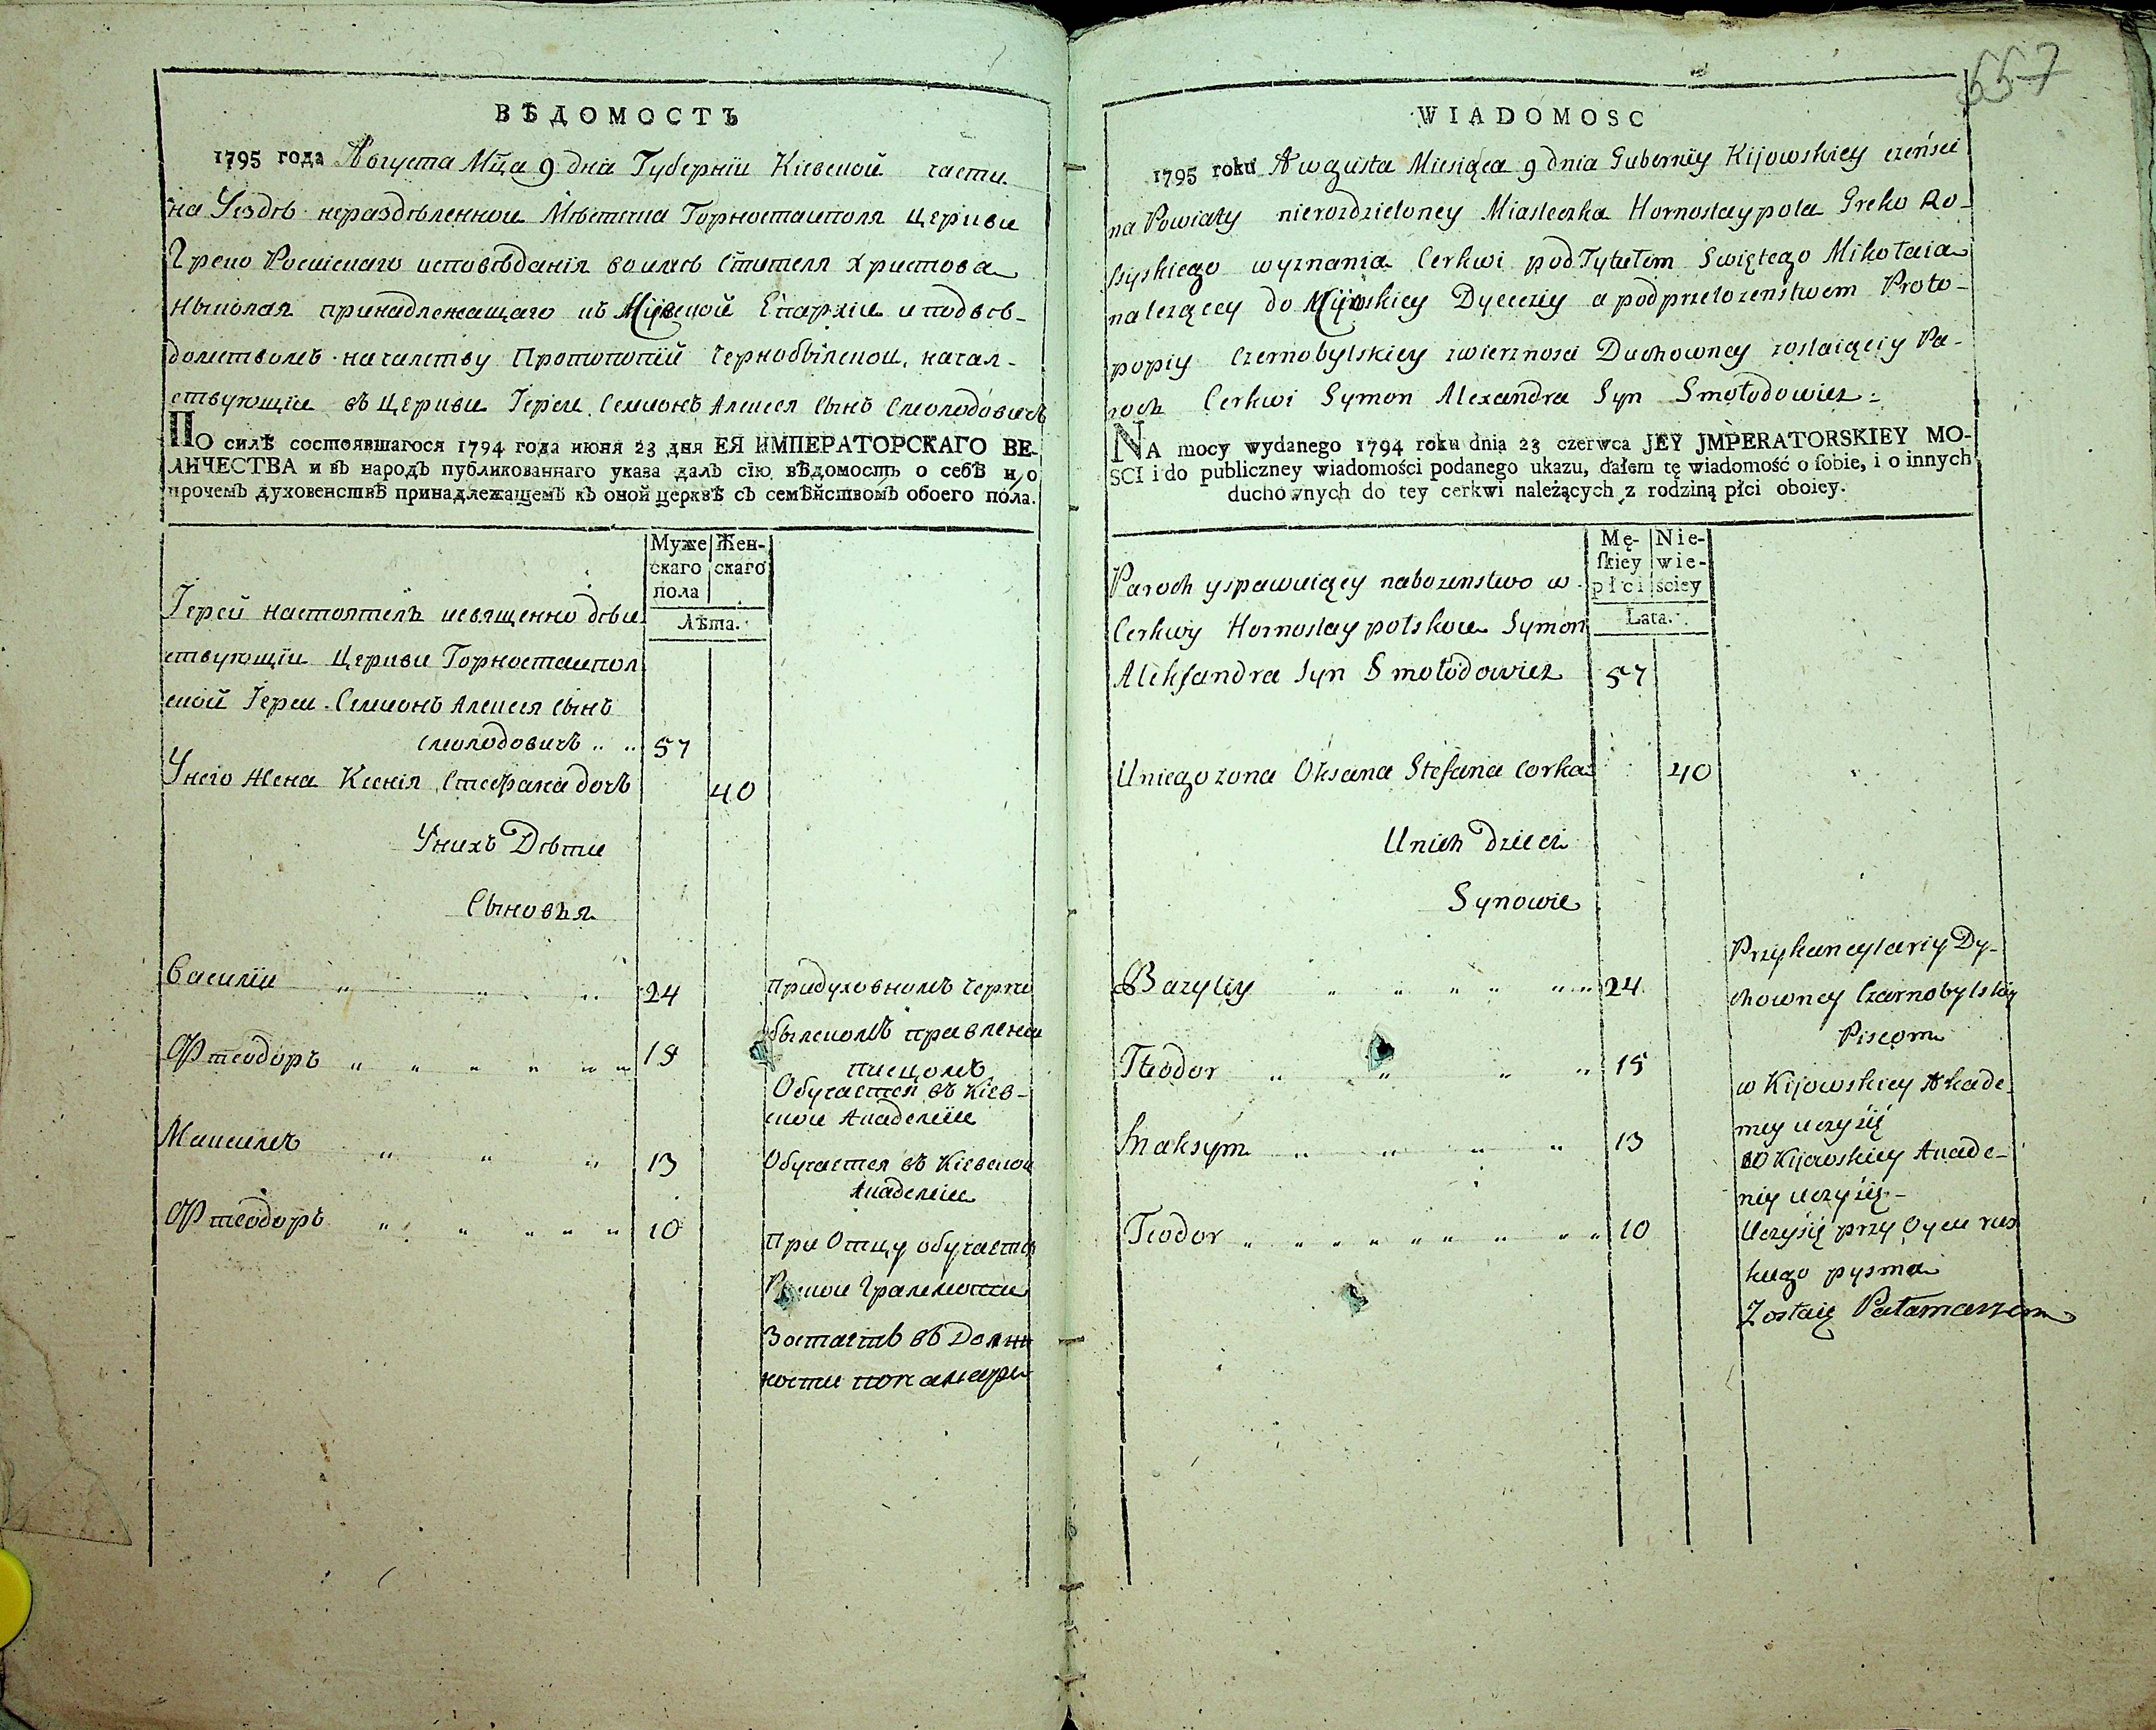 ВѢДОМОСТЪ
1795 года Августа Мца 9 дня Губернїи Кіевской части
на Уездѣ нераздѣленной Мѣстечка Горностаиполя церкви
Греко Росискаго исповѣданія во имя Стителя Христова
Николая принадлежащаго къ Епархіи и подвѣ-
домствомъ началству Протопопїй Чернобылской, начал-
ствующїи въ Церкви Іереи Семионъ Алексея Сынъ Смолодовичъ
ПО силѣ состоявшагося 1794 года июня 23 дня ЕЯ ИМПЕРАТОРСКАГО ВЕ-
ЛИЧЕСТВА и въ народъ публикованнаго указа далъ сїю вѣдомость о себѣ и о
прочемъ духовенствѣ принадлежащемъ къ оной церквѣ съ семѣйствомъ обоего пола.
Муже Жен-
скаго скаго
пола
Лѣта.
Іерей настоятель исвященно дѣи
ствующїи Церкви Горностаипол
ской Іереи Семионъ Алексея Сынъ
Смолодовичъ 57
Унего Жена Ксенія Стефана дочь 40
Унихъ Дѣти
Сыновья
Василїи 24 придуховномъ Черно
былскомъ правлении
писцомъ
Фтеодоръ 15 Обучается въ Кіев-
ской Академїи
Максимъ 13 Обучается въ Кіевской
Академїи
Фтеодоръ 10 при Отцу обучается
Граммоти
Зостаетъ въ Долж
ности понамари
557
WIADOMOSC
1795 roku Awgusta Miesiąca 9 dnia Guberniy Kijowskiey częńsci
na Powiaty nierozdzieloney Miasteczka Hornostaypola Greko Ro-
ssyskiego wyznania Cerkwi pod Tytułem Swiętego Mikołaia
nalezącey do Dyeceziy a pod przełozenstwem Proto-
popiy Czernobylskiey zwierznosci Duchowney zostaiąciy Pa-
roch Cerkwi Symon Alexandra Syn Smołodowicz
NA mocy wydanego 1794 roku dnia 23 czerwca JEY JMPERATORSKIEY MO-
SCI i do publiczney wiadomości podanego ukazu, dałem tę wiadomość o ſobie, i o innych
duchownych do tey cerkwi należących z rodziną płci oboiey.
Mę- Nie-
ſkiey wie-
płci ściey
Lata.
Paroch yspawuiący nabozenstwo w
Cerkwy Hornostaypolskoie Symon
Alekſandra Syn Smołodowicz 57
Uniego zona Oksana Stefana Corka 40
Unich Dzieci
Synowie
Bazyliy 24 Przykancylariy Dy-
chowney Czarnobylskiy
Piscom
Teodor 15 w Kijowskiey Akade
miy uczyśię
Maksym 13 w Kijowskiey Akade-
miy uczyśię
Teodor 10 Uczyśię przy Oycu rus
kiego pysma
Zostaię Patamarzem